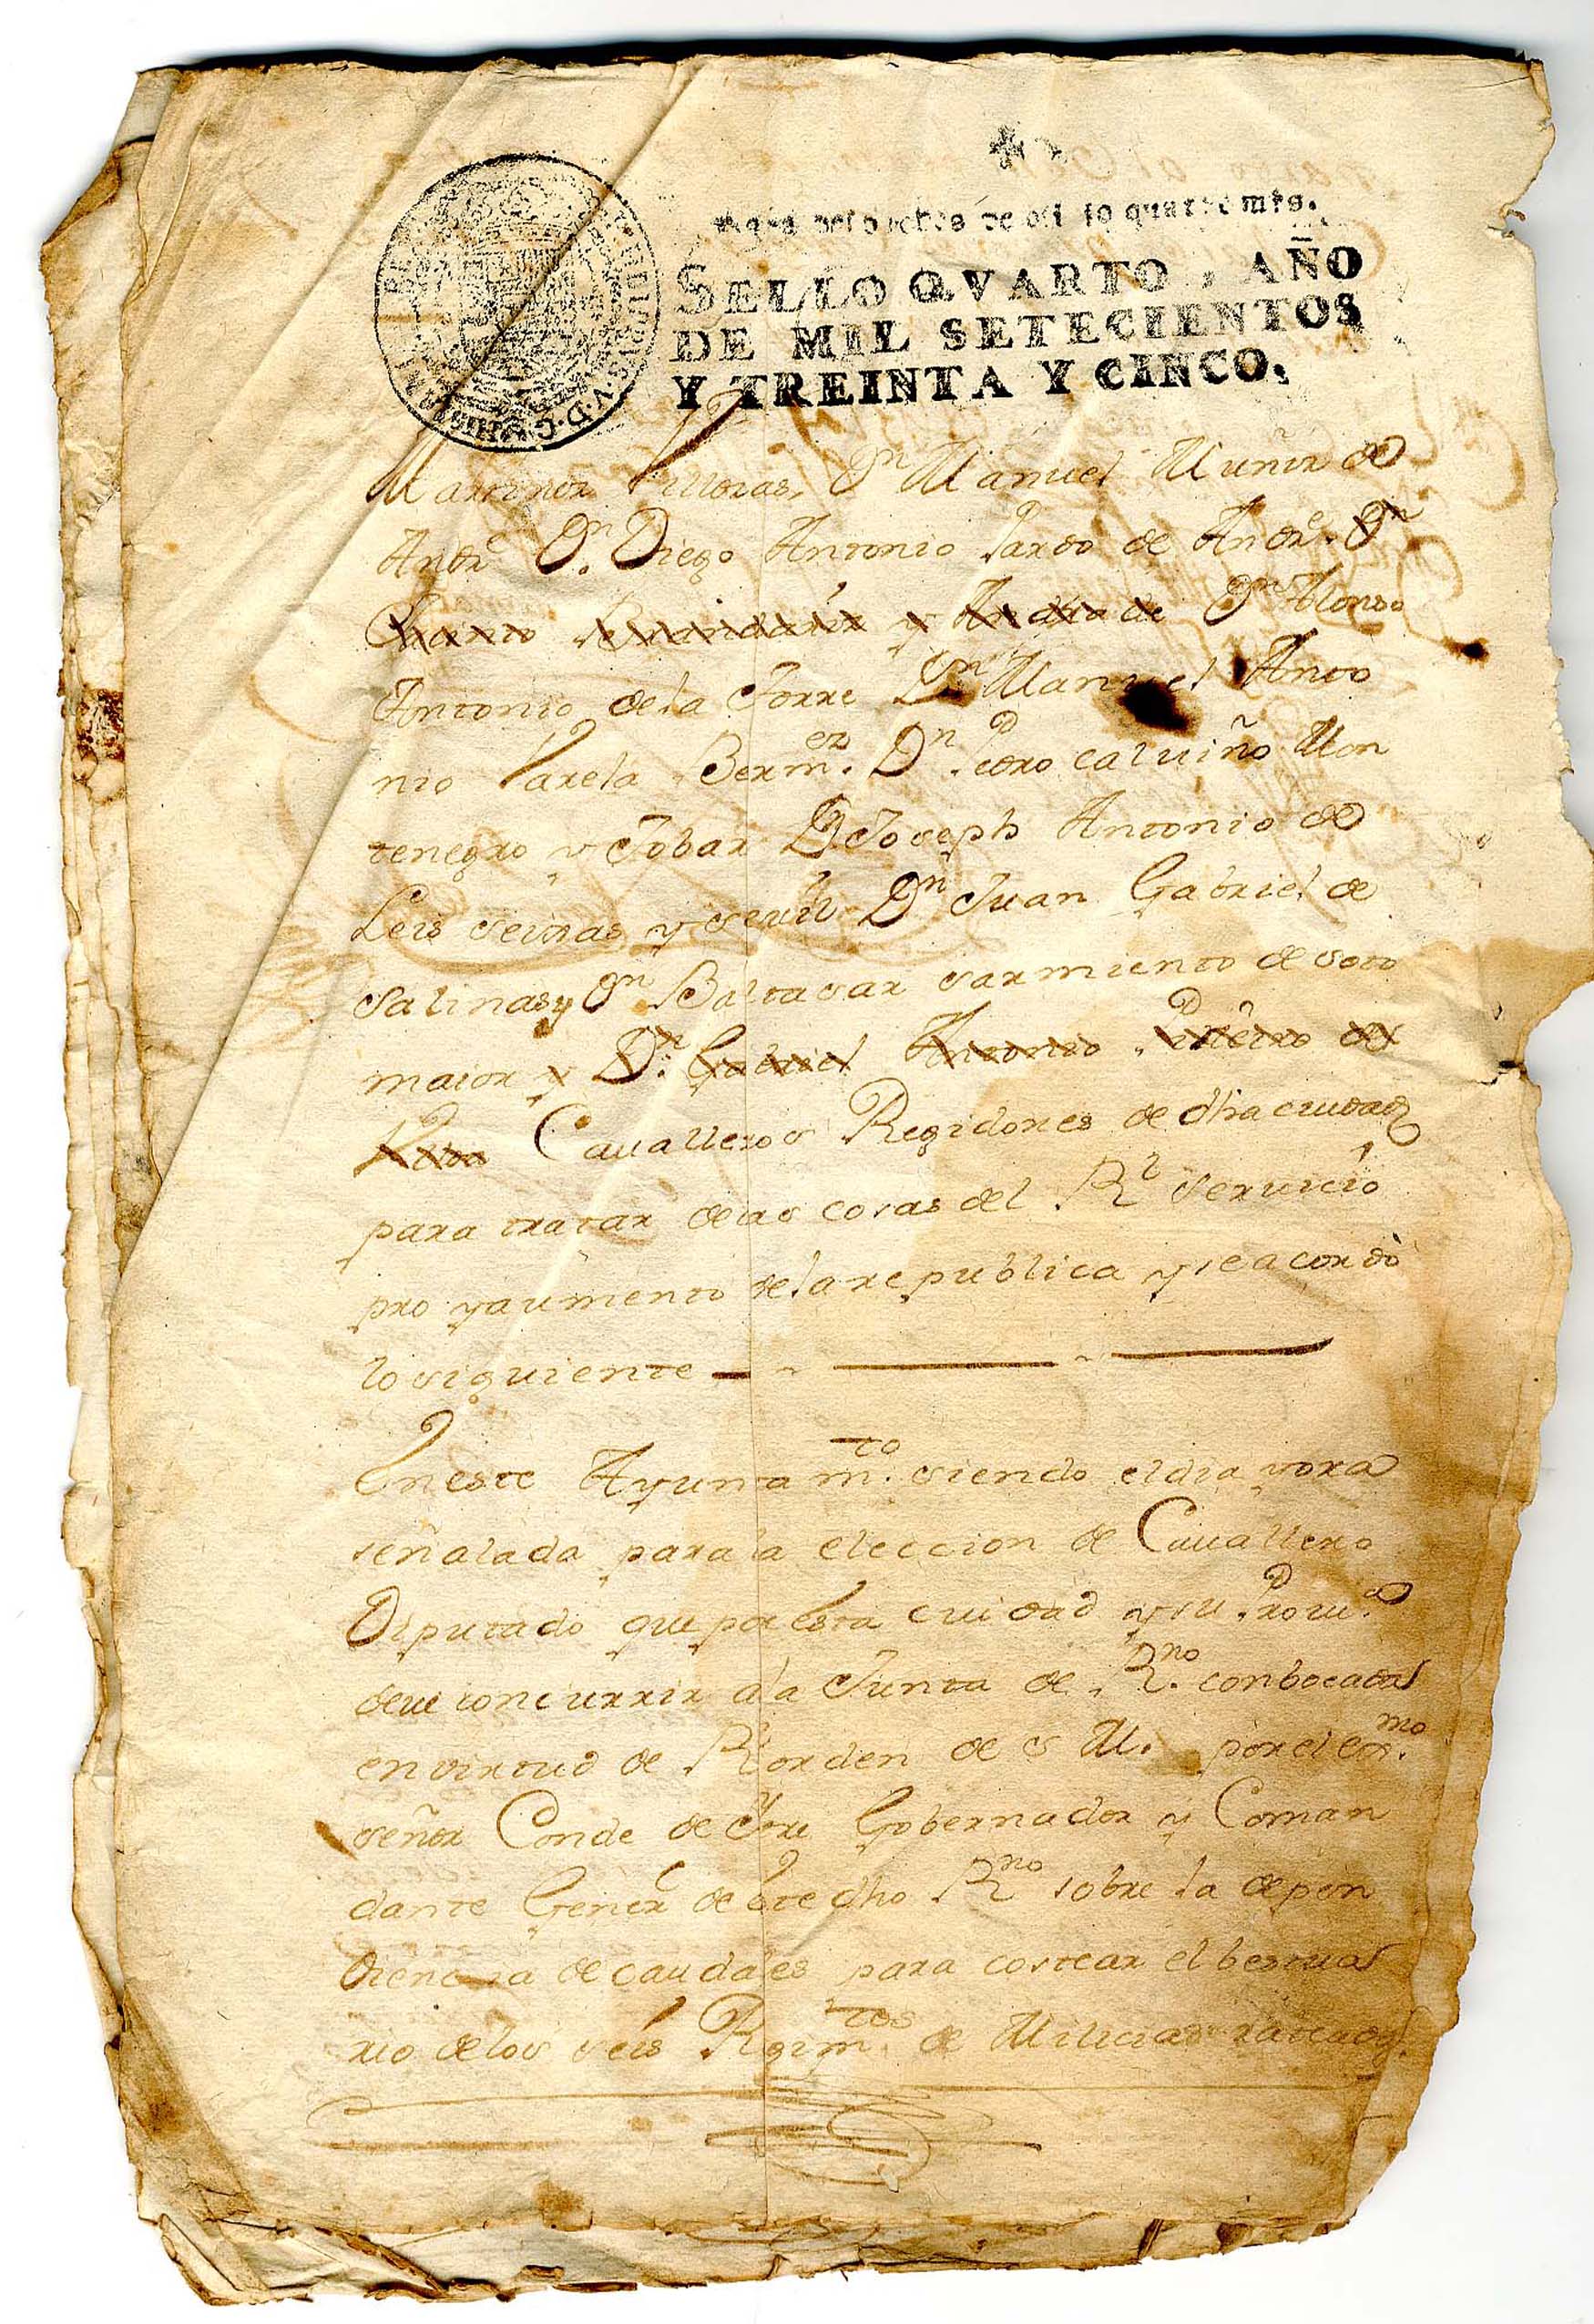 SELLO QVARTO, AÑO
DE MIL SETECIENTOS
Y TREINTA Y CINCO,
Dn Manuel Muñiz de
Andre Dn Diego Antonio Pardo de Andre. Dn
y Andrade Dn Alonso
Antonio de la Torre Dn Manuel Anto
nio Varela Bermez. Dn Pedro calviño Mon
tenegro y Tobar Dn Joseph Antonio de
Leis seixas y Dn Juan Gabriel de
Salinas y Dn Baltasar sarmiento de soto
maior y Dn Gabriel Antonio Piñeiro de
Cavalleros Regidores de dha ciudad
para tratar de las cosas del Rl servicio
pro y aumento de la republica y se acordò
lo siguiente
En este Ayuntamto. siendo el dia y ora
señalada para la eleccion de Cavallero
Diputado que por esta ciudad y su Prova
deve concurrir a la Junta de Rno. conbocada
en virtud de Rl orden de S M. por el exmo.
señor Conde de Ytre Gobernador y Coman
dante Generl de este dho Rno sobre la depen
diencia de caudales para costear el bestua
rio de los seis Regimtos. de Milicias